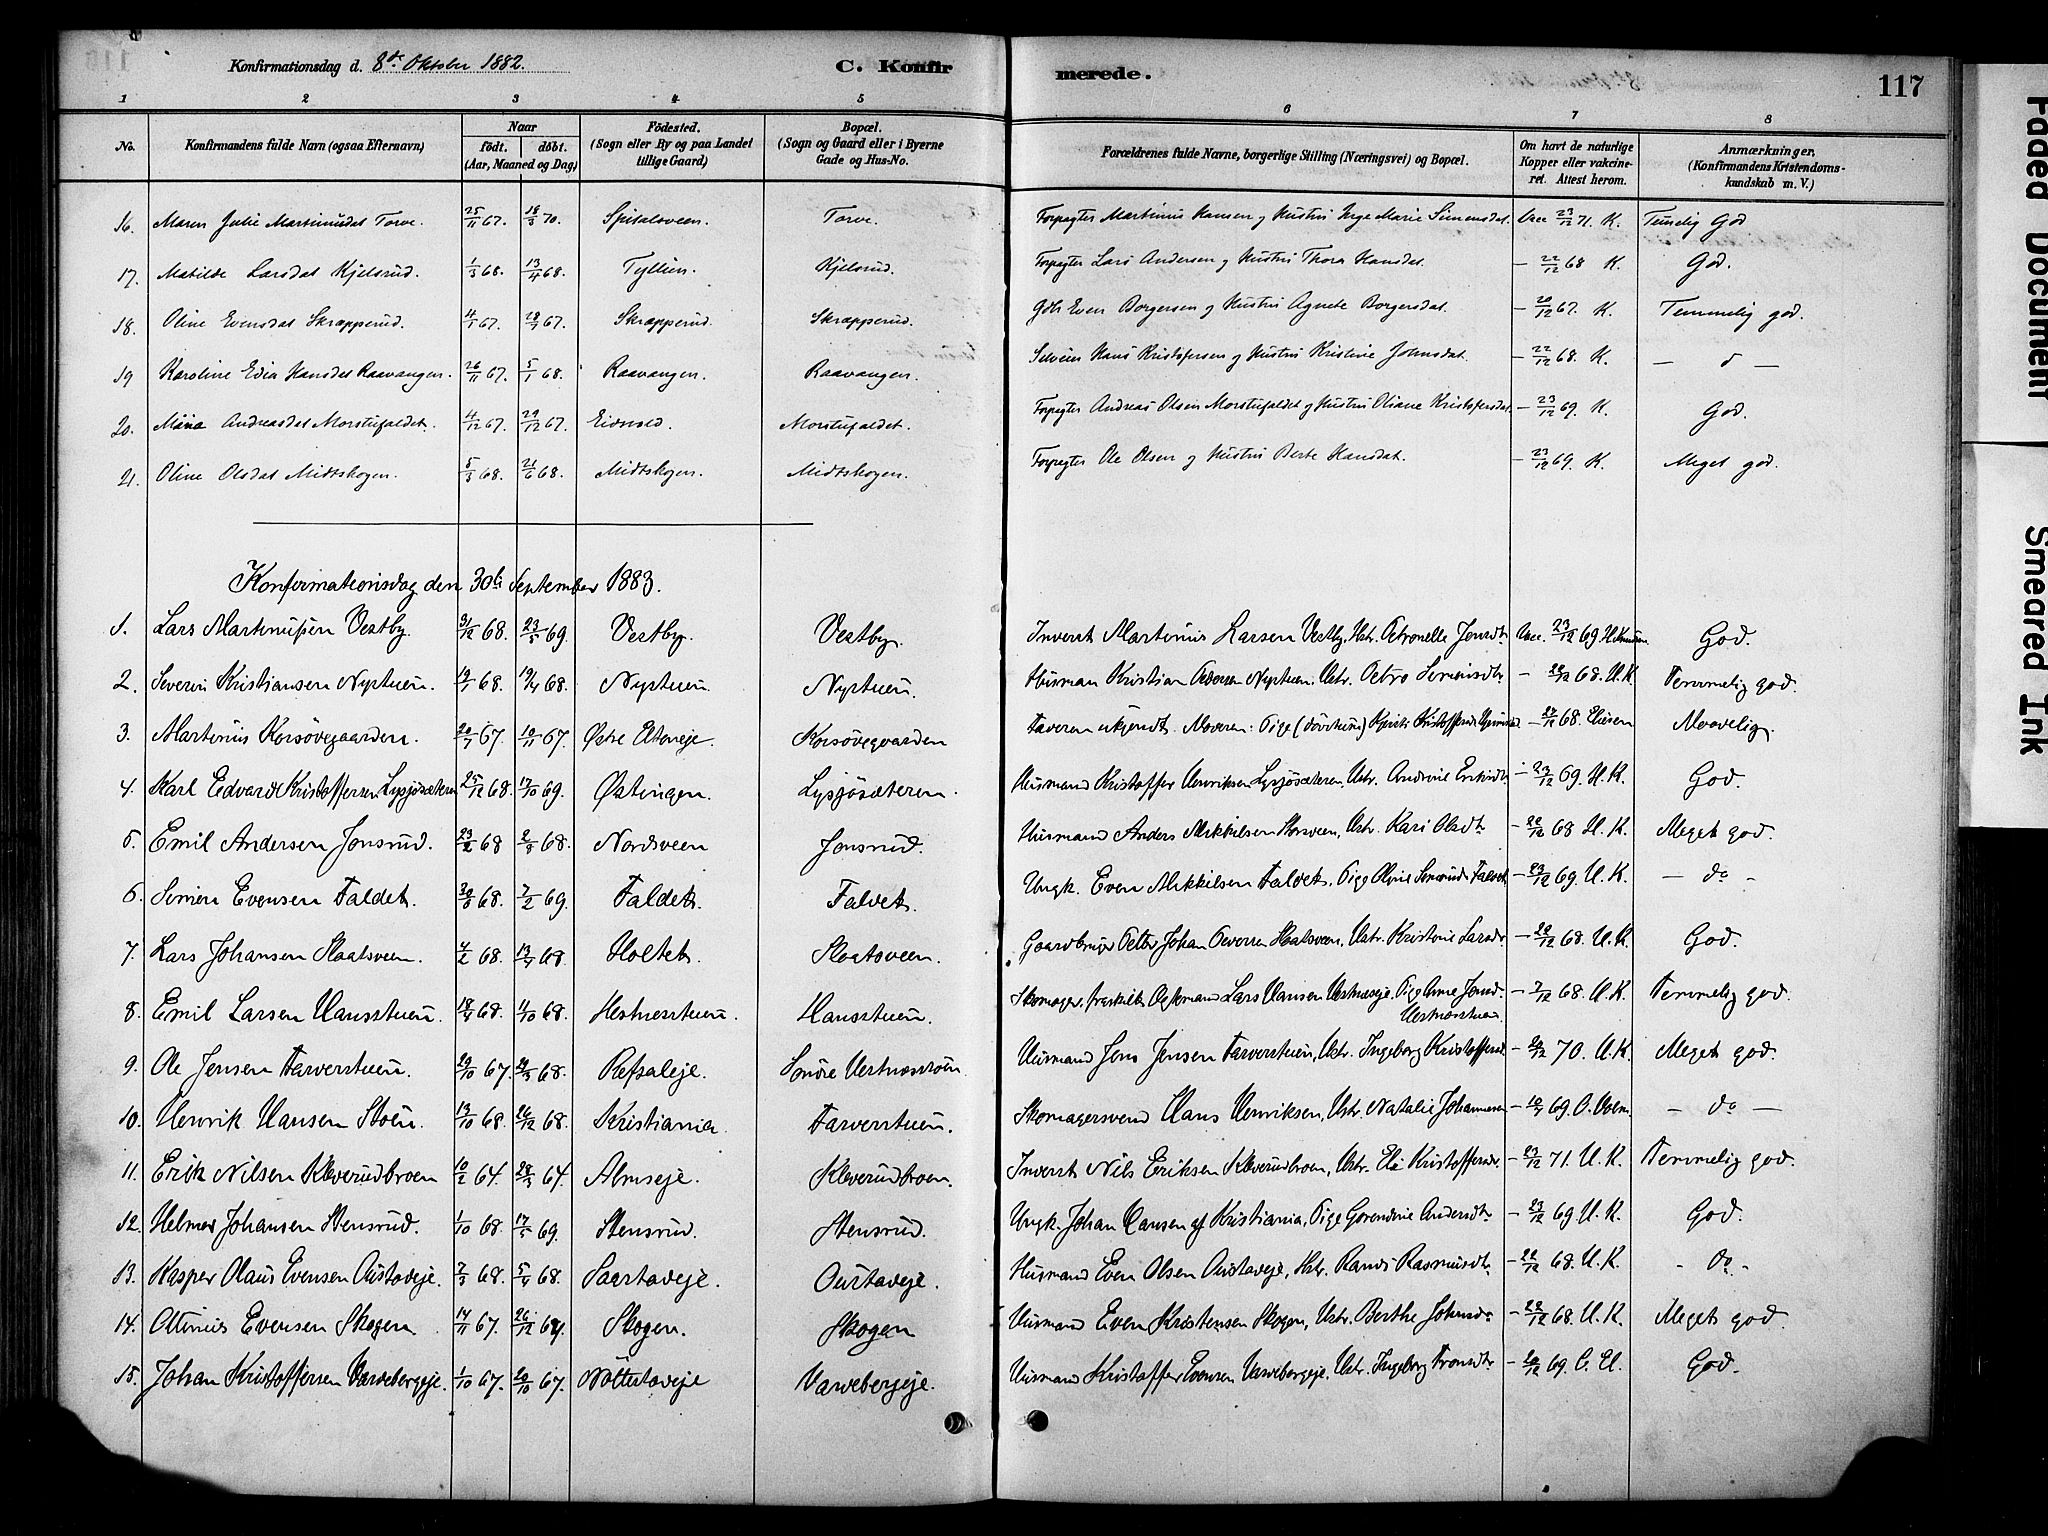 Konfirmationsdag d. 8de Oktober 1882. C. Konfirmerede. 117
1 2 3 4 5 6 7 8
No. Konfirmandens fulde Navn (ogsaa Efternavn) Naar födt. döbt. (Aar, Maaned og Dag) Födested. (Sogn eller By og paa Landet tillige Gaard) Bopæl. (Sogn og Gaard eller i Byerne Gade og Hus-No. Forældrenes fulde Navne, borgerlige Stilling (Næringsvei) og Bopæl. Om havt de naturlige Kopper eller vakcineret. Attest herom. Anmærkninger, (Konfirmandens Kristendomskundskab m. V.)
16. Maren Julie Martinusdat Torve. 25/11 67. 18/3 70. Spitalsveen. Torve. Forpagter Martinius Hansen og Hustru Inge Marie Simensdat. Vacc 23/12 71. K. Temmelig God
17. Matilde Larsdat Kjelsrud. 1/3 68. 13/4 68. Tyllien. Kjelsrud. Forpagter Lars Andersen og Hustru Thora Hansdat. – 22/12 68 K. God.
18. Oline Evensdat Skrapperud. 4/1 67. 28/1 67. Skrapperud. Skrapperud. Gdb Even Borgersen og Hustru Agnete Borgersdat. – 20/12 67. K. Temmelig god.
19 Karoline Edia Hansdat Raavangen. 26/11 67. 5/1 68. Raavangen. Raavangen. Selveier Hans Kristofersen og Hustru Kristine Johnsdat. – 22/12 68. K. – d –
20. Mina Andreasdat Morstufaldet. 4/12 67. 29/12 67. Morstufaldet. Forpagter Andreas Olsen Morstufaldet og Hustru Oliane Kristofersdat – 23/12 69. K. God.
21. Oline Olsdat Midtskogen. 5/3 68. 21/6 68. Midtskogen. Midtskogen. Forpagter Ole Olsen og Hustru Berte Hansdat. – 23/12 69. K. Meget god.
Konfirmationsdag den 30te September 1883.
1. Lars Martinussen Vestby. 31/12 68. 23/5 69. Vestby. Vestby. Inderst Martinius Larsen Vestby, Hstr. Petronelle Jensdt. Vacc. 23/12 69 God.
2. Severin Kristiansen Nystuen. 19/1 68. 19/4 68. Nystuen. Nystuen. Husman Kristian Pedersen Nystuen. Hstr. Petro Simensdt. – 22/12 68. H. K. Temmelig god.
3. Martinius Korsövegaarden. 20/7 67. 10/11 67. Østre Korsövegaarden Faderen ukjendt. Moderen: Pige 68. Maadelig.
4. Karl Edvard Kristoffersen Lysjösæteren 25/12 68. 17/10 69. Østingen. Lysjösæteren. Husmand Kristoffer Henriksen Lysjösæteren, Hstr. – 23/12 69. H. K. God.
5. Emil Andersen Jonsrud. 23/2 68 2/8 68. Nordsveen Jonsrud. Husmand Anders Mikkelsen Hstr. Kari Olsdt. – 22/12 68 H. K. Meget god.
6. Simen Evensen Faldet. 30/8 68. 7/2 69. Faldet. Faldet. Ungk. Even Mikkelsen Faldet, Pige Faldet – 23/12 69. H. K. – do –
7. Lars Johansen Skaatsveen. 4/2 68. 13/4 68 Holtet. Skaatsveen. Gaardbruger Petter Johan Pedersen Hstr. Kristine Larsdt. – 22/12 68. H. K. God.
8. Emil Larsen Hansstuen. 18/9 68. 4/10 68. Hestnesstuen. Hansstuen. Skomager, Lars Hansen Pige Anne Jensd. Hestnesstuen. – 7/12 68. H. K. Temmelig god.
9. Ole Jensen Farverstuen. 29/10 67. 68. Refsaleje. Husmand Jens Jensen Farverstuen, Hstr. Ingeborg – 70. H. K. Meget god.
10. Henrik Hansen Stoen. 13/10 68. 26/12 68. Kristiania Farverstuen. Skomagersvend Hans Henriksen, Hstr. Natalie Johannesen – 69. – do –
11. Erik Nilsen Kleverudbroen 10/2 64. 28/3 64. Almseje. Kleverudbroen. Inderst Nils Eriksen Kleverudbroen, Hstr. Eli – 23/12 71. H. K. Temmelig god.
12. Helmer Johansen Stensrud. 1/10 68. 17/5 69. Stensrud. Stensrud. Ungk. Johan Hansen af Kristiania, Pige Andersdt. – 23/12 69 H. K. God.
13. Kasper Olaus Evensen Oustadeje. 7/3 68. 5/4 68. Saastadeje. Oustadeje. Husmand Even Olsen Oustadeje, Hstr. Randi Rasmusdt. – 22/12 68. H. K. – do –
14. Ottinius Evensen Skogen 14/11 67. 26/12 67. Skogen. Skogen Husmand Even Kristensen Skogen, Hstr. Berthe Johnsd. – 22/12 68. H. K. Meget god.
15. Johan Kristoffersen Varvebergeje. 1/10 67. 20/10 67. Nöttestadeje Varvebergeje. Husmand Kristoffer Evensen Varvebergeje, Hstr. Ingeborg – 20/12 69. God.
Faded Document
Smeared Ink